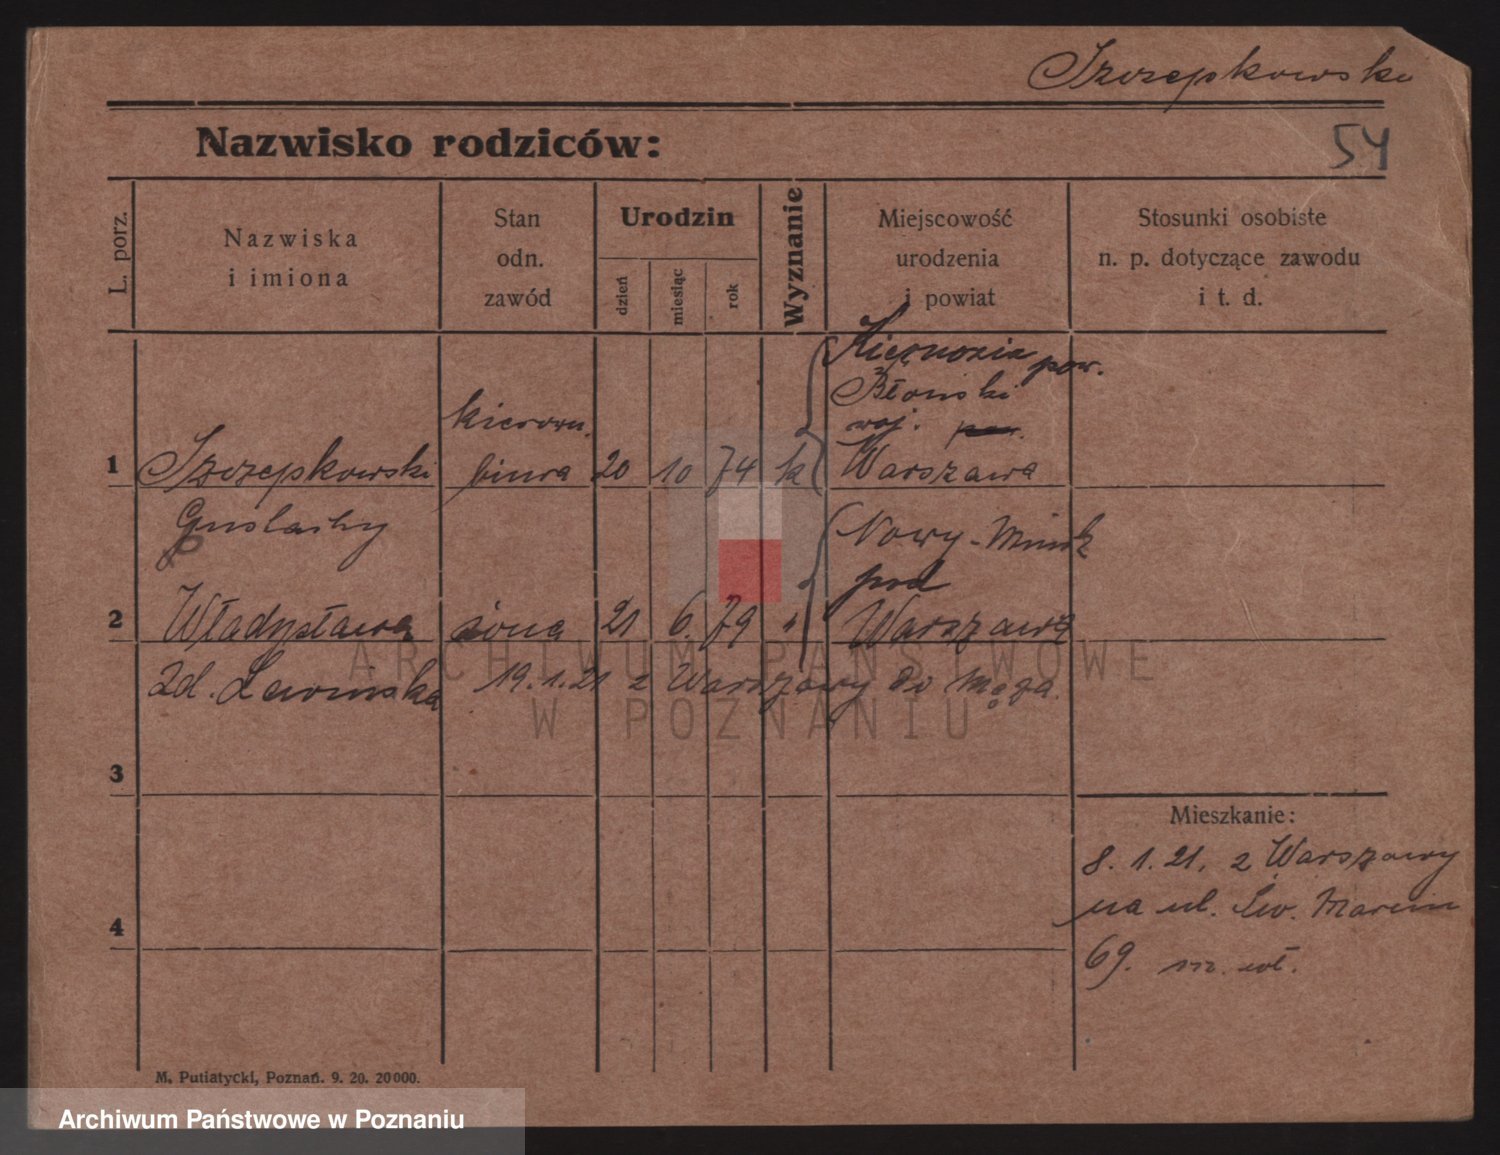 Szczepkowski
Nazwisko rodziców:
54
L. porz.
Nazwiska
i imiona
Stan
odn.
zawód
Urodzin
dzień
miesiąc
rok
Wyznanie
Miejscowość
urodzenia
i powiat
Stosunki osobiste
n. p. dotyczące zawodu
i t. d.
pow.
Błoński
kierown. woj.
1 Szczepkowski biura 20 10 74 k Warszawa
Nowy-Minsk
pod
2 Władysława żona 21 6. 79 " Warszawą
zd. Lewinska 19.1.21 z Warszawy do męża.
3
Mieszkanie:
8. 1. 21. z Warszawy
na ul. Św. Marcin
4
69. m. wł.
M. Putiatycki, Poznań. 9. 20. 20000.
ARCHIWUM PAŃSTWOWE
W POZNANIU
Archiwum Państwowe w Poznaniu